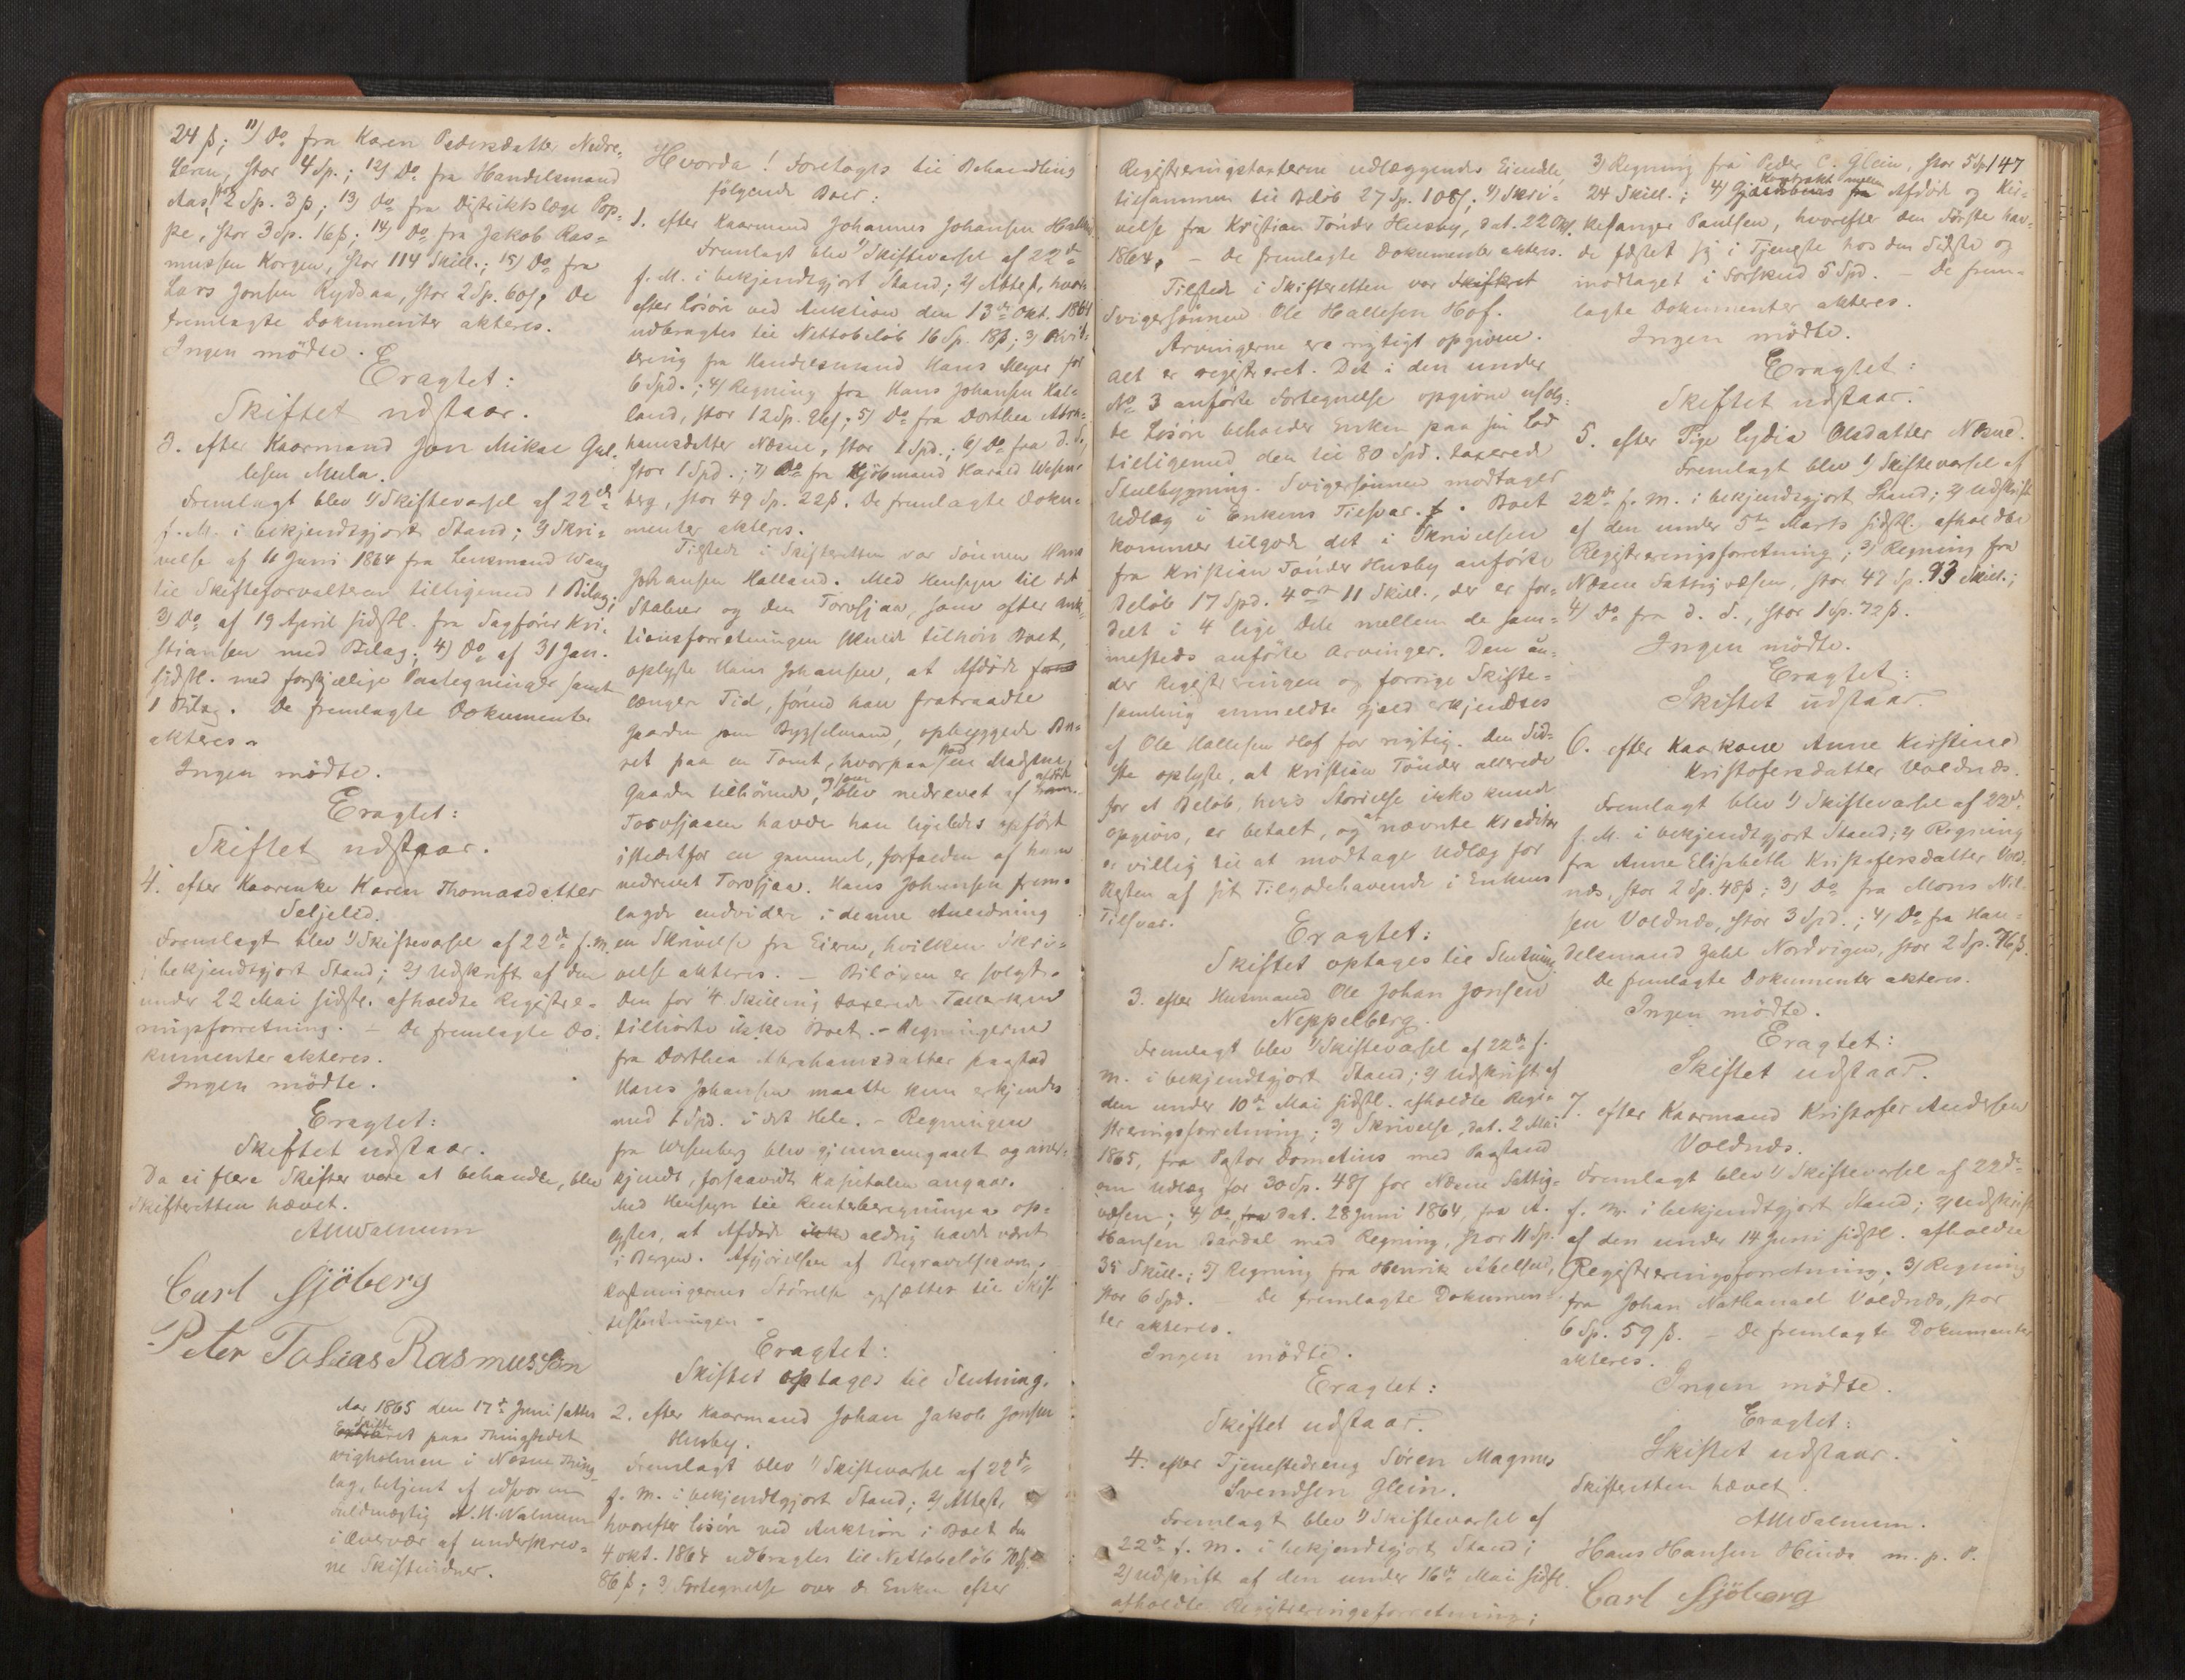 24 β; 11) Do fra Karen Pedersdatter Nedre-
leren, stor 4 Sp.; 12) Do fra Handelsmand
Aas, stor 2 Sp. 3 β; 13) Do fra Distriktslæge Pop-
pe, stor 3 Sp. 16 β; 14) Do fra Jakob Ras-
mussen Korgen, stor 114 Skill.; 15) Do fra
Lars Jonsen Rydsaa, stor 2 Sp. 60 β. De
fremlagte Dokumenter akteres.
Ingen mödte.
Eragtet:
Skiftet udstaar.
3. efter Kaarmand Jon Mikal Gul-
lesen Mula.
Fremlagt blev 1) Skiftevarsel af 22de
f. M. i bekjendtgjort Stand; 2) Skri-
velse af 11 Juni 1864 fra Lensmand Wang
til Skifteforvalteren tilligemed 1 Bilag;
3) Do af 19 April sidstl. fra Sagförer Kri-
stiansen med Bilag; 4) Do af 31 Jan.
sidstl. med forskjælige Paategninger samt
1 Bilag. De fremlagte Dokumenter
akteres.
Ingen mödte.
Eragtet:
Skiftet udstaar.
4. efter Kaarenke Karen Thomasdatter
Seljelid.
Fremlagt blev 1) Skiftevarsel af 22de f. M.
i bekjendtgjort Stand; 2) Udskrift af den
under 22 Mai sidstl. afholdte Registre-
ringsforretning. – De fremlagte Do-
kumenter akteres.
Ingen mödte.
Eragtet:
Skiftet udstaar.
Da ei flere Skifter vare at behandle, blev
Skifteretten hævet.
AMWalnum
Carl Sjöberg
Peter Tobias Rasmussen
Aar 1865 den 17de Juni sattes
Skifteret paa Thingstedet
Vigholmen i Nesne Thing-
lag, betjent af edsvoren
Fuldmægtig A. M. Walnum
i Overvær af underskrev-
ne Skiftevidner.
Hvorda! Foretoges til Behandling
følgende Boer:
1. efter Kaarmand Johannes Johansen Halland.
Fremlagt blev 1) Skiftevarsel af 22de
f. M. i bekjendtgjort Stand; 2) Attest, hvor-
efter Lösöre ved Auktion den 13de Okt. 1864
udbragtes til Nettobelöb 16 Sp. 18 β; 3) Kvit-
tering fra Handelsmand Hans Meyer for
6 Spd.; 4) Regning fra Hans Johansen Hal-
land, stor 12 Sp. 96 β; 5) Do fra Dorthea Abra-
hamsdatter Næsne, stor 1 Spd.; 6) Do fra d. S.,
stor 1 Spd.; 7) Do fra Kjöbmand Harald Wesen-
berg, stor 49 Sp. 22 β. De fremlagte Doku-
menter akteres.
Tilstede i Skifteretten var Sönnen Hans
Johansen Halland. Med Hensyn til det
Stabur og den Torvsjaa, som efter Auk-
tionsforretningen skulde tilhöre Boet,
oplyste Hans Johansen, at Afdöde
længere Tid, förend han fratraadte
Gaarden som Bygselmand, opbyggede Bu-
ret paa en Tomt, hvorpaa stod en Madstue
Gaarden tilhörende, og som blev nedrevet af Afdöde.
Torvsjaaen havde han ligeledes opfört
istedetfor en gammel, forfalden af ham
nedrevet Torvsjaa. Hans Johansen frem-
lagde endvidere i denne Anledning
en Skrivelse fra Eieren, hvilken Skri-
velse akteres. – Bilöxen er solgt.
Den for 4 Skilling taxerede Tallerken
tilhörte ikke Boet. – Regningerne
fra Dorthea Abrahamsdatter paastod
Hans Johansen maatte kun erkjendes
med 1 Spd. i det Hele. – Regningen
fra Wesenberg blev gjennemgaaet og aner-
kjendt, forsaavidt Kapitalen angaar.
Med Hensyn til Renteberegningen op-
lystes, at Afdöde aldrig havde været
i Bergen. Afgjörelsen af Begravelsesom-
kostningernes Störrelse opsættes til Skif-
teslutningen.
Eragtet:
Skiftet optages til Slutning.
2. efter Kaarmand Johan Jakob Jonsen
Husby.
Fremlagt blev 1) Skiftevarsel af 22de
f. M. i bekjendtgjort Stand; 2) Attest,
hvorefter Lösöre ved Auktion i Boet den
4 Okt. 1864 udbragtes til Nettobelöb 70 Sp.
86 β; 3) Fortegnelse over de Enken efter
Registreringstaxterne udlæggende Eiendele,
tilsammen til Belöb 27 Sp. 108 β; 4) Skri-
velse fra Kristian Tönder Husby, dat. 22 Okt.
1864. – De fremlagte Dokumenter akteres.
Tilstede i Skifteretten var Skifteret
Svigersönnen Ole Hallesen Hof.
Arvingerne ere rigtigt opgivne.
Alt er registreret. Det i den under
No 3 anförte Fortegnelse opgivne usolg-
te Lösöre beholder Enken paa sin Lod
tilligemed den til 80 Spd. taxerede
Stuebygning. Svigersönnen modtager
Udlæg i Enkens Tilsvar. Boet
kommer tilgode det i Skrivelsen
fra Kristian Tönder Husby anförte
Belöb 17 Spd. 4 ort 11 Skill., der er for-
delt i 4 lige Dele mellem de sam-
mesteds anförte Arvinger. Den un-
der Registreringen og forrige Skifte-
samling anmeldte Gjæld erkjendtes
af Ole Hallesen Hof for rigtig. Den Sid-
ste oplyste, at Kristian Tönder allerede
for et Belöb, hvis Störrelse ikke kunde
opgives, er betalt, og at nævnte Kreditor
er villig til at modtage Udlæg for
Resten af sit Tilgodehavende i Enkens
Tilsvar.
Eragtet:
Skiftet optages til Slutning.
3. efter Husmand Ole Johan Jonsen
Neppelberg.
Fremlagt blev 1) Skiftevarsel af 22de f.
M. i bekjendtgjort Stand; 2) Udskrift af
den under 10de Mai sidstl. afholdte Regi-
streringsforretning; 3) Skrivelse, dat. 2 Mai
1865, fra Pastor Dometius med Paastand
om Udlæg for 30 Sp. 48 β for Næsne Fattig-
væsen; 4) Do, fra dat. 28 Juni 1864, fra A.
Hansen Bardal med Regning, stor 11 Sp.
35 Skill.; 5) Regning fra Henrik Abelsen,
stor 6 Spd. De fremlagte Dokumen-
ter akteres.
Ingen mödte.
Eragtet:
Skiftet udstaar.
4. efter Tjenestedreng Sören Magnus
Svendsen Glein.
Fremlagt blev 1) Skiftevarsel af
22de f. M. i bekjendtgjort Stand;
2) Udskrift af den under 16de Mai sidstl.
afholdte Registreringsforretning;
147
3) Regning fra Peder C. Glein, stor 5 Sp.
24 Skill.; 4) Kontrakt mellem Afdöde og Ki-
kesanger Paulsen, hvorefter den Förste hav-
de fæstet sig i Tjeneste hos den Sidste og
modtaget i Forskud 5 Spd. – De frem-
lagte Dokumenter akteres.
Ingen mödte.
Eragtet:
Skiftet udstaar.
5. efter Pige Lydia Olsdatter Næsne.
Fremlagt blev 1) Skiftevarsel af
22de f. M. i bekjendtgjort Stand; 2) Udskrift
af den under 5te Marts sidstl. afholdte
Registreringsforretning; 3) Regning fra
Næsne Fattigvæsen, stor 47 Sp. 93 Skill.;
4) Do fra d. S., stor 1 Sp. 72 β.
Ingen mödte.
Eragtet:
Skiftet udstaar.
6. efter Kaarkone Anne Kirstine
Kristofersdatter Voldnæs.
Fremlagt blev 1) Skiftevarsel af 22de
f. M. i bekjendtgjort Stand; 2) Regning
fra Anne Elisabeth Kristofersdatter Vold-
næs, stor 2 Sp. 48 β; 3) Do fra Mons Nil-
sen Voldnæs, stor 3 Spd.; 4) Do fra Han-
delsmand Zahl Nordvigen, stor 2 Sp. 76 β.
De fremlagte Dokumenter akteres.
Ingen mödte.
Eragtet:
Skiftet udstaar.
7. efter Kaarmand Kristofer Andersen
Voldnæs.
Fremlagt blev 1) Skiftevarsel af 22de
f. M. i bekjendtgjort Stand; 2) Udskrift
af den under 14 Juni sidstl. afholdte
Registreringsforretning; 3) Regning
fra Johan Nathanael Voldnæs, stor
6 Sp. 59 β. – De fremlagte Dokumenter
akteres.
Ingen mödte.
Eragtet:
Skiftet udstaar.
Skifteretten hævet.
AMWalnum.
Hans Hansen Hinds m. p. P.
Carl Sjöberg